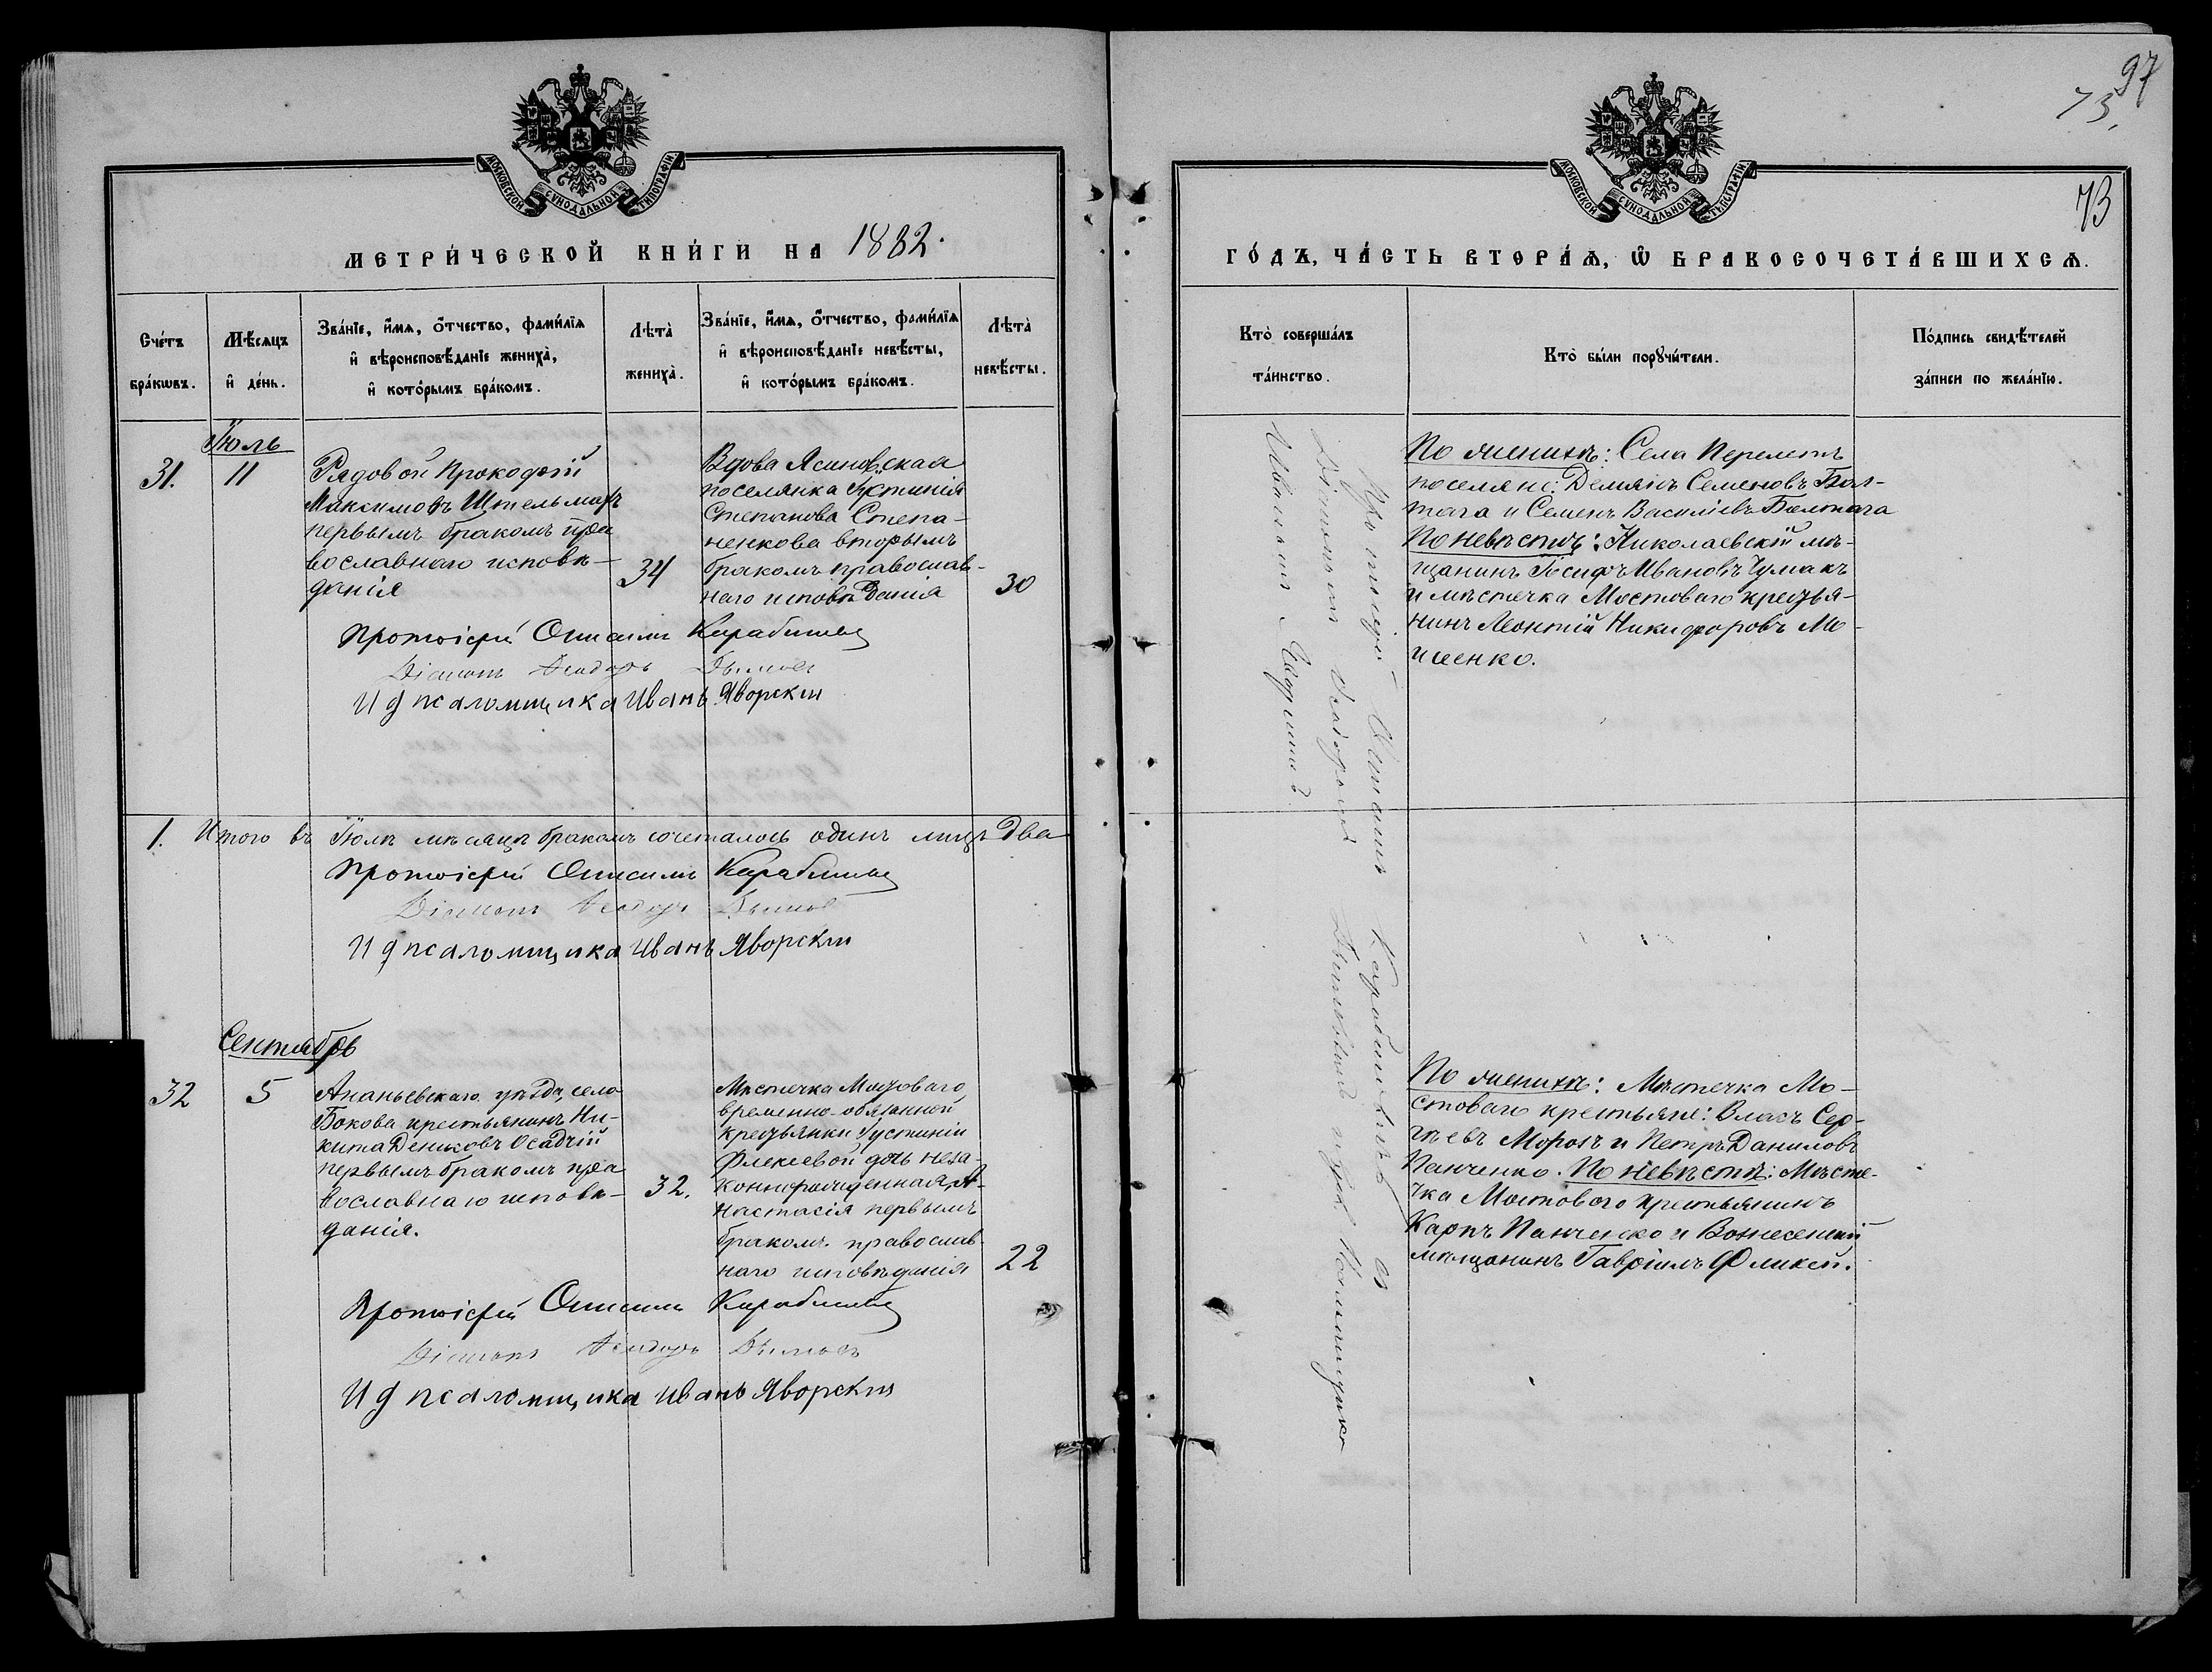 97
73,
73
МОСКОВСКОЙ СУНОДАЛЬНОЙ ТИПОГРАФІИ.
МЕТРИ́ЧЕСКОЙ КНИ́ГИ НА 1882.
Сче́тъ бра́кѡвъ.
Мѣ́сяцъ и҆ де́нь.
Зва́нїе, и҆́мѧ, ѻ҆́тчество, фами́лїѧ
и҆ вѣроисповѣ́данїе жениха̀,
и҆ кото́рымъ бра́комъ.
Лѣ́та̀ жениха̀.
Зва́нїе, и҆́мѧ, ѻ҆́тчество, фами́лїѧ
и҆ вѣроисповѣ́данїе невѣ́сты,
и҆ кото́рымъ бра́комъ.
Лѣ́та̀ невѣ́сты.
Іюль
31.
11
Рядовой Прокофій
Максимовъ Штельмахъ
первымъ бракомъ пра
вославнаго исповѣ-
данія
34
Вдова Ясиновская
поселянка Іустинія
Степанова Степа-
ненкова вторымъ
бракомъ православ-
наго исповѣданія
30
Протоіерей Онисимъ
Діаконъ Ѳеодоръ
И д псаломщика Иванъ Яворскій
1. Итого въ Іюлѣ мѣсяцѣ бракомъ сочеталось одинъ лицъ два
Протоіерей Онисимъ
Діаконъ Ѳеодоръ
И д псаломщика Иванъ Яворскій
Сентябрь
32
5
Ананьевскаго уѣзда, села
Бокова крестьянинъ Ни-
кита Денисовъ Осадчій
первымъ бракомъ пра
вославнаго исповѣ-
данія.
32.
Мѣстечка Мостоваго
временно-обязанной
крестьянки Іустиніи
Алексіевой дочь неза-
коннорожденная, А-
настасія первымъ
бракомъ православ
наго исповѣданія
22
Протоіерей Онисимъ
Діаконъ Ѳеодоръ
И д псаломщика Иванъ Яворскій
МОСКОВСКОЙ СУНОДАЛЬНОЙ ТИПОГРАФІИ.
ГО́ДЪ, ЧА́СТЬ ВТОРА́Ѧ, Ѡ҆ БРАКОСОЧЕТА́ВШИХСѦ.
Кто̀ соверша́лъ
та́инство.
Кто̀ бы́ли порꙋчи́тели.
По́дпись свидѣ́телей
за́писи по жела́нїю.
Протоіерей Онисимъ съ
Діакономъ Ѳеодоромъ
По женихѣ: Села Перелетъ
поселяне: Деміянъ Семеновъ Бал-
тага и Семенъ Василіевъ Балтага
По невѣстѣ: Николаевскій мѣ-
щанинъ Іосифъ Ивановъ Чумакъ
и мѣстечка Мостоваго крестья-
нинъ Леонтій Никифоровъ Мо-
исенко.
По женихѣ: Мѣстечка Мо-
стоваго крестьяне: Власъ Сер-
гѣевъ Морозъ и Петръ Даниловъ
Панченко. По невѣстѣ: Мѣсте-
чка Мостоваго крестьянинъ
Карпъ Панченко и Вознесенскій
мѣщанинъ Гавріилъ